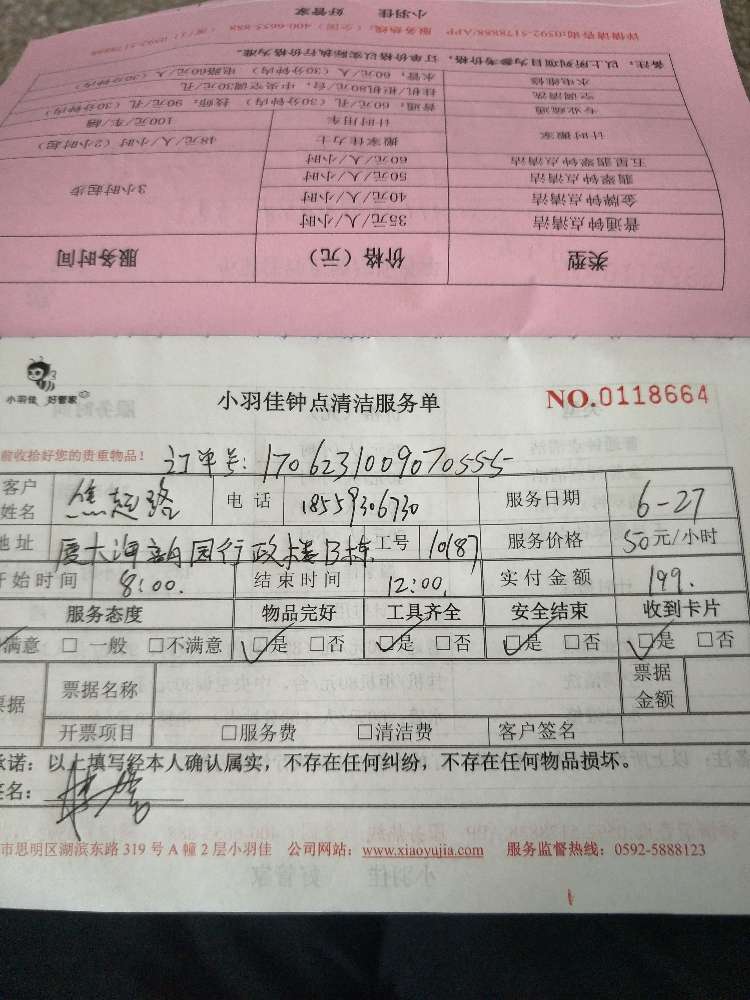 类型 价格（元） 服务时间
普通钟点清洁 35元/人/小时
金牌钟点清洁 40元/人/小时
翡翠钟点清洁 50元/人/小时 3小时起步
五星翡翠钟点清洁 60元/人/小时
计时搬家 搬家佳力士 48元/人/小时（2小时起）
计时用车 100元/车/趟
专业疏通 普通：60元/孔（30分钟内） 技师：90元/孔（30分钟内）
空调清洗 挂机/柜机80元/台，中央空调30元/孔
水电维修 水管：60元/人（30分钟内） 电路60元/人（30分钟内）
备注：以上所列项目为参考价格，订单价格以实际执行价格为准。
详情请咨询:0592-5178888/APP 服务热线：（全国）400-6655-888
小羽佳 好管家
小羽佳 好管家
小羽佳钟点清洁服务单
NO.0118664
前收拾好您的贵重物品！ 订单号：1706231009070555
客户姓名 焦超路 电话 18559306730 服务日期 6-27
地址 厦大海韵园行政楼B栋 工号 10187 服务价格 50元/小时
开始时间 8:00. 结束时间 12:00. 实付金额 199.
服务态度 物品完好 工具齐全 安全结束 收到卡片
满意 □ 一般 □不满意 □是 □否 □是 □否 □是 □否 □是 □否
票据 票据名称 票据金额
开票项目 □服务费 □清洁费 客户签名
承诺：以上填写经本人确认属实，不存在任何纠纷，不存在任何物品损坏。
签名：
市思明区湖滨东路 319 号 A 幢 2 层小羽佳 公司网站：www.xiaoyujia.com 服务监督热线：0592-5888123